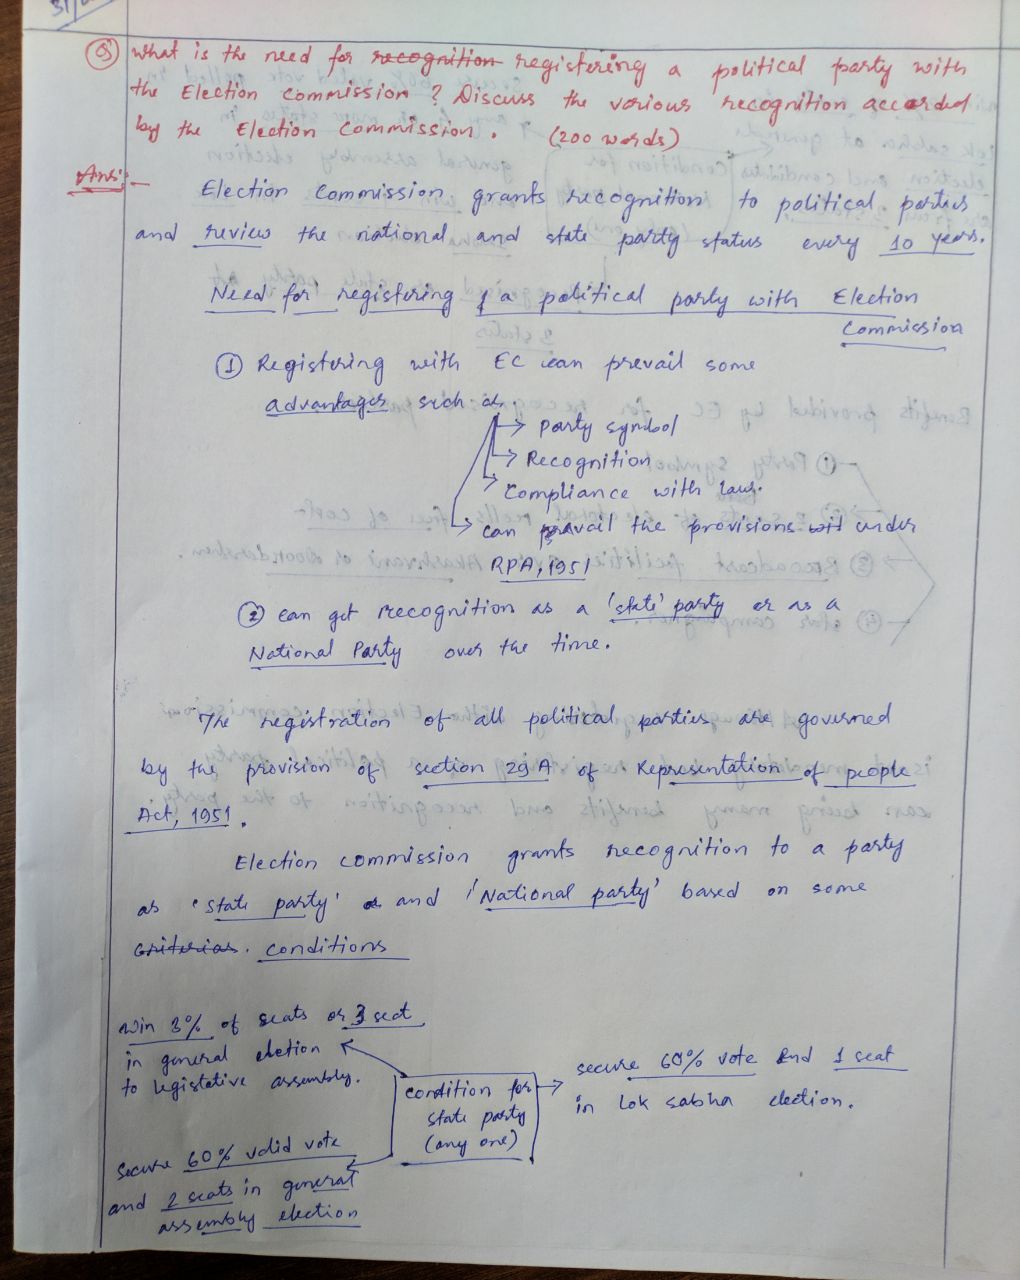 31/
Q) What is the need for recognition registering a political party with
the Election commission ? Discuss the various recognition accorded
by the Election Commission. (200 words)
Ans:-
Election Commission grants recognition to political parties
and review the national and state party status every 10 years.
Need for registering of a political party with Election
Commission
① Registering with EC can prevail some
advantages such as.
→ Party symbol
→ Recognition
→ Compliance with laws.
→ can prevail the provisions under
RPA, 1951
② can get recognition as a 'state' party or as a
National Party over the time.
The registration of all political parties are governed
by the provision of section 29A of Representation of people
Act, 1951.
Election commission grants recognition to a party
as 'state party' and 'National party' based on some
criterias. conditions
win 3% of seats or 3 seat
in general election
to legistative assembly.
condition for
state party
(any one)
secure 60% vote and 1 seat
in Lok sabha election.
Secure 60% valid vote
and 2 seats in general
assembly election